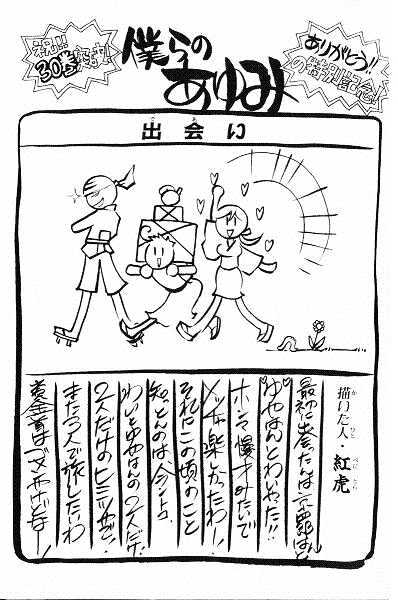 祝!!
30巻突破!
僕らの
あゆみ
ありがとう!!
の特別記念
出会い
描いた人・紅虎
最初に出会ったんは京四郎はんと
ゆやはんとわいやった!!
ホンマ、漫才みたいで
メッチャ楽しかったわー!
それにこの頃のこと
知っとんのは今んトコ
わいとゆやはんの2人だけ。
2人だけのヒミツやで
また3人で旅したいわ
黄金首はゴメンやけどなー!